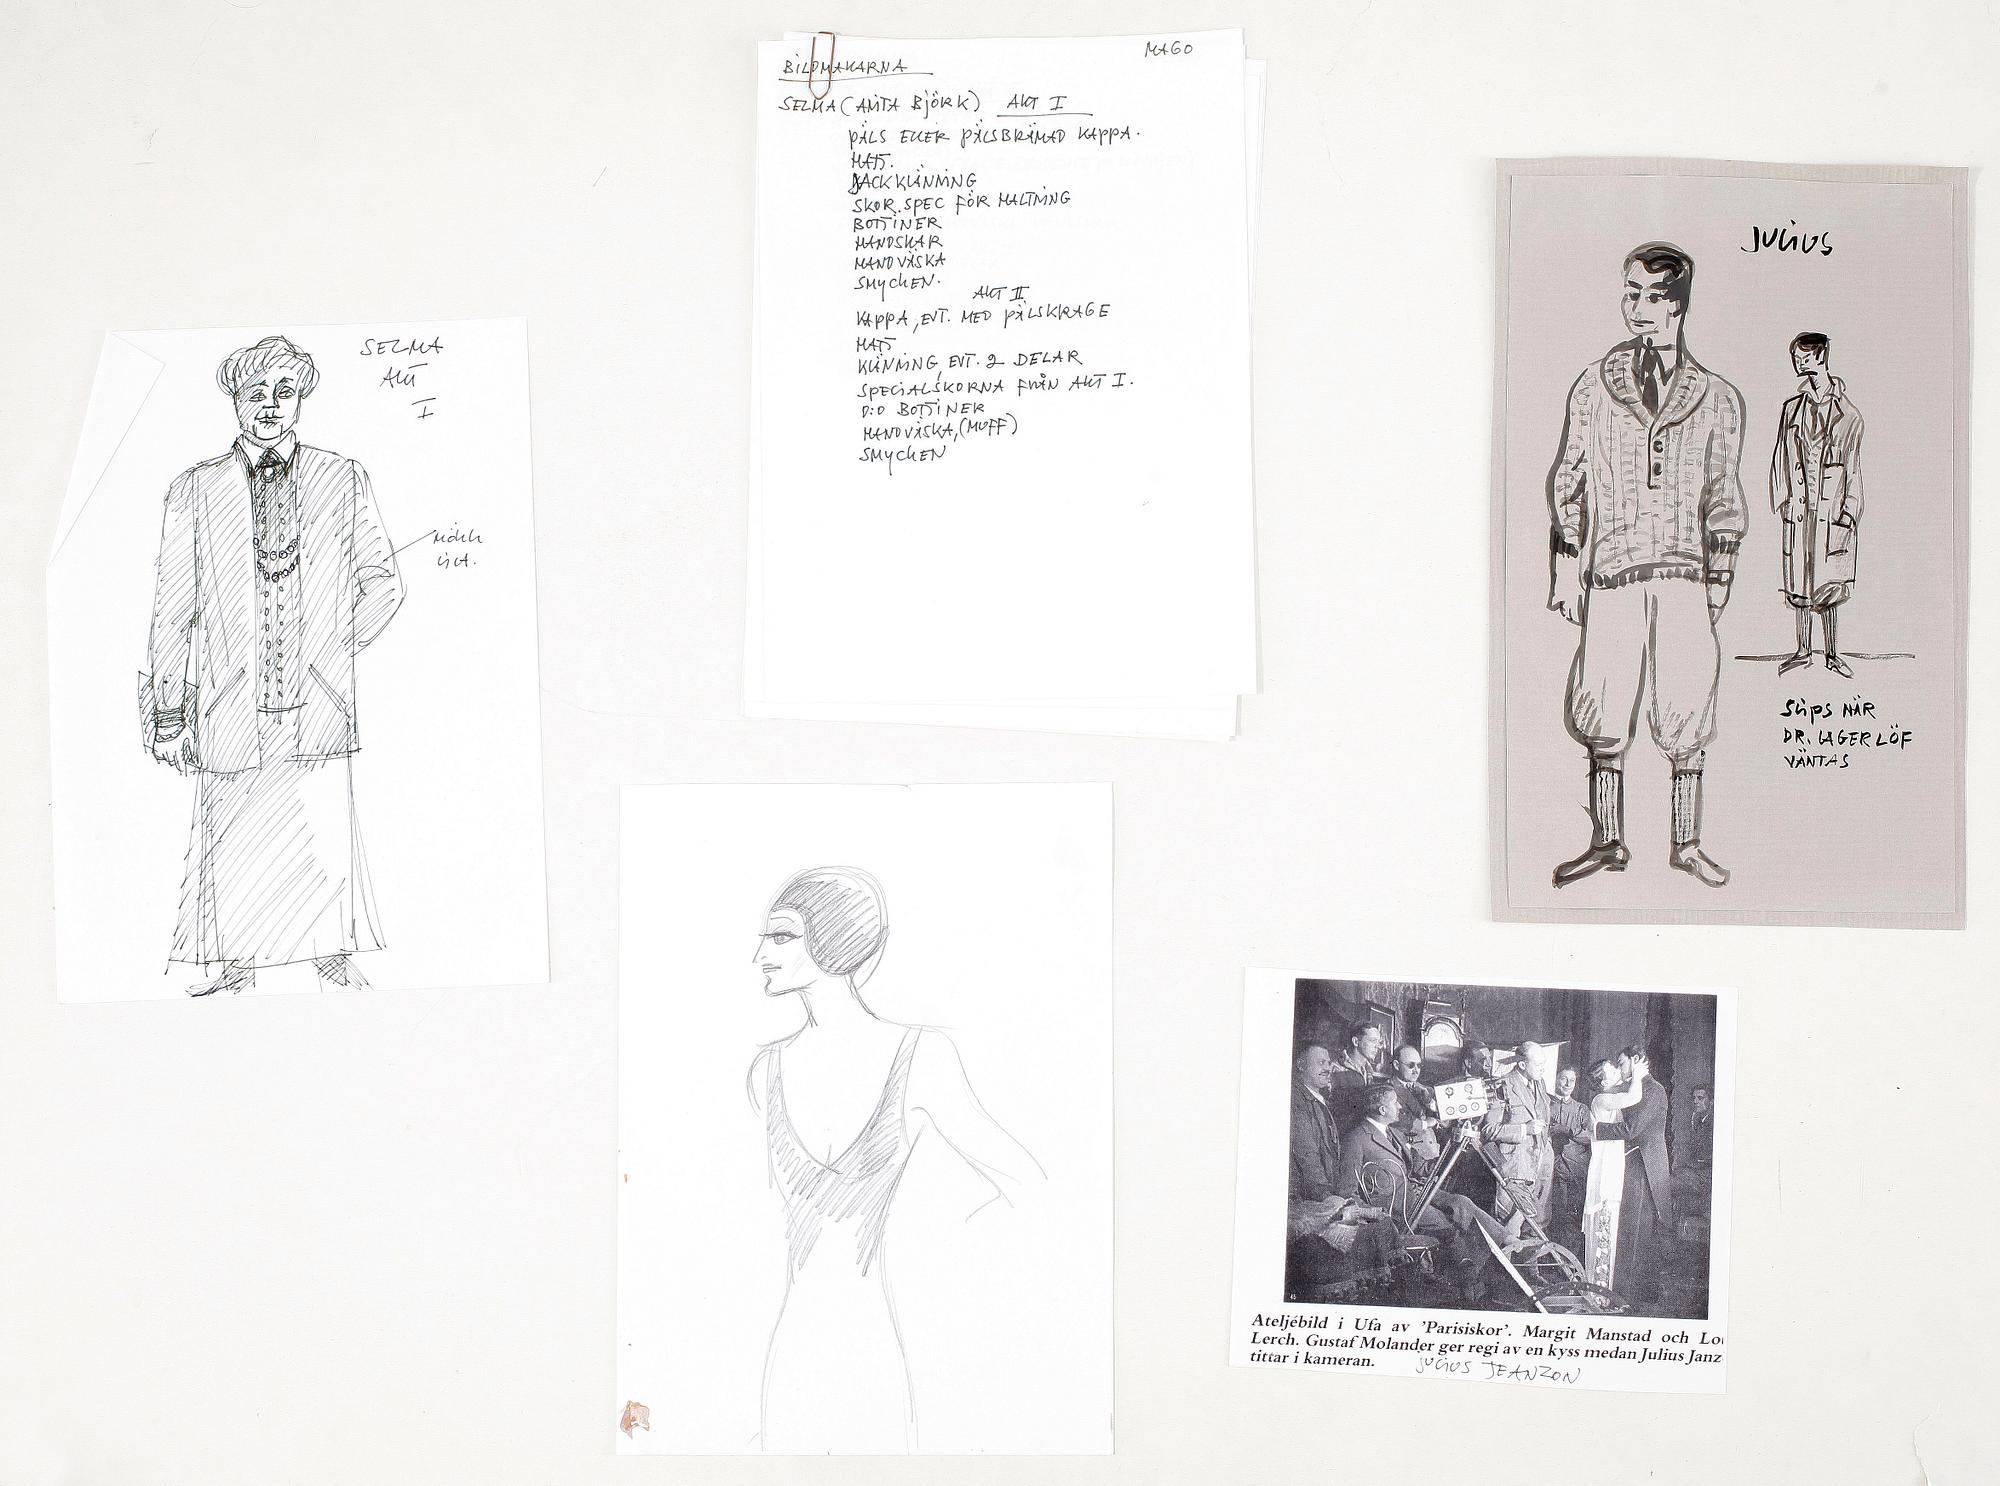 SELMA
AKT
I
mörk
lila.
BILDMAKARNA
MAGO
SELMA (ANITA BJÖRK) AKT I
PÄLS ELLER PÄLSBRÄMAD KAPPA.
HATT.
JACKKLÄNNING
SKOR. SPEC FÖR HALTNING
BOTTINER
HANDSKAR
HANDVÄSKA
SMYCKEN.
AKT II
KAPPA, EVT. MED PÄLSKRAGE
HATT
KLÄNNING, EVT. 2 DELAR
SPECIALSKORNA FRÅN AKT I.
D:O BOTTINER
HANDVÄSKA, (MUFF)
SMYCKEN
JULIUS
SLIPS NÄR
DR. LAGERLÖF
VÄNTAS
Ateljébild i Ufa av 'Parisiskor'. Margit Manstad och Lou
Lerch. Gustaf Molander ger regi av en kyss medan Julius Janz
tittar i kameran.
JULIUS JEANZON